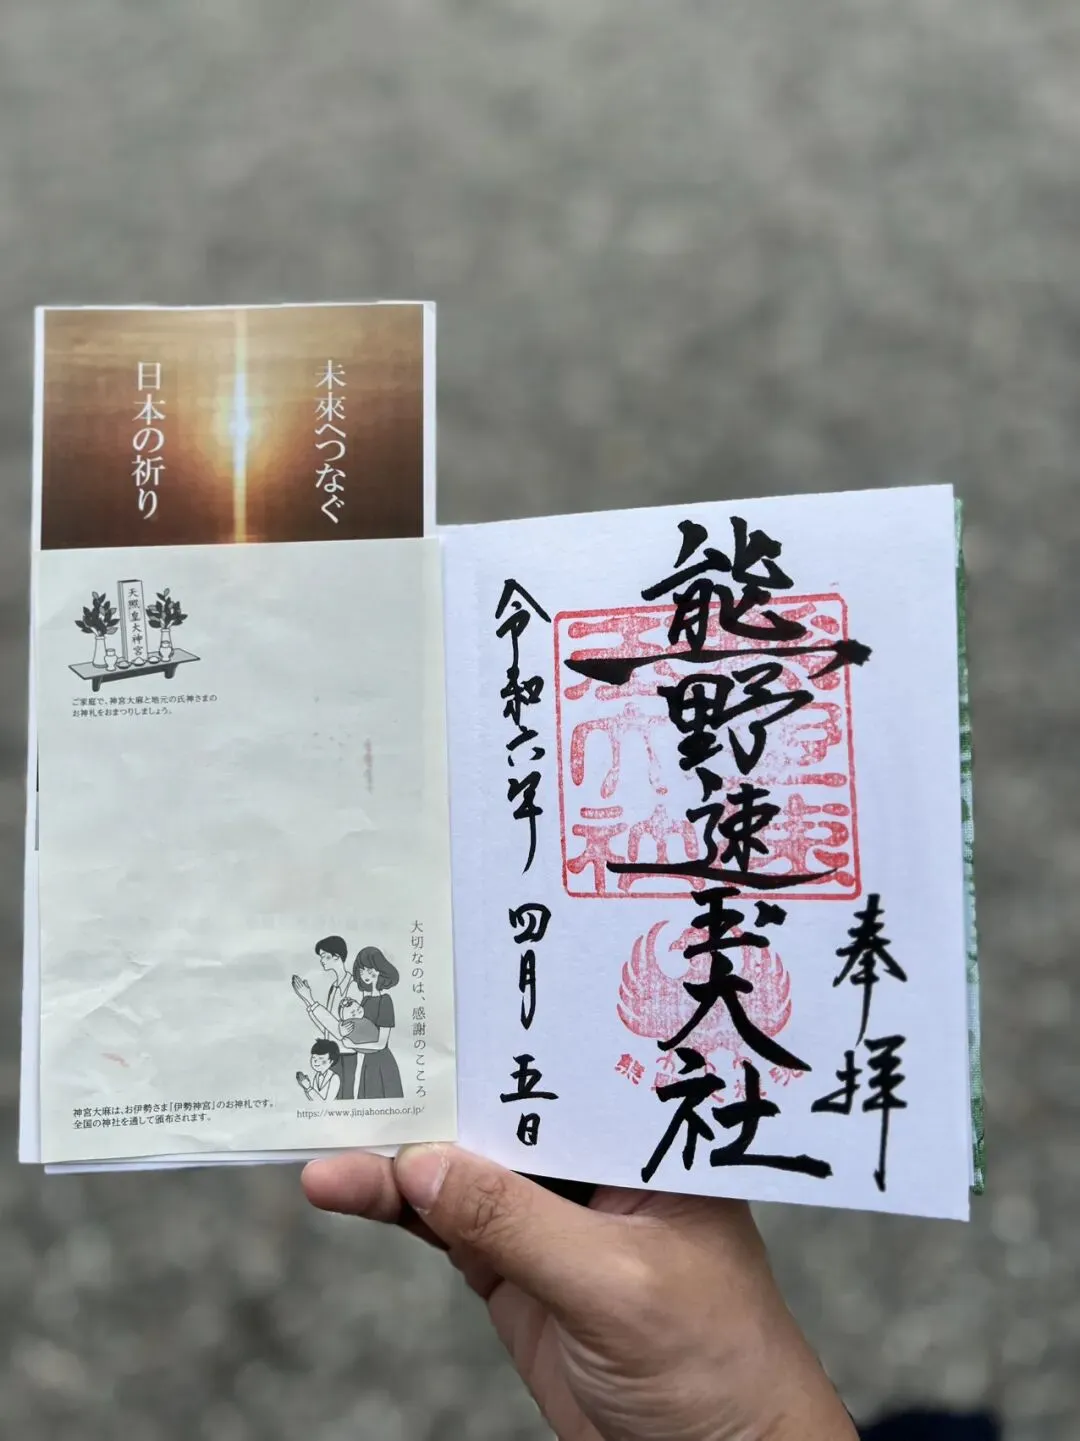 未來へつなぐ
日本の祈り
天照皇大神宮
ご家庭で、神宮大麻と地元の氏神さまの
お神札をおまつりしましょう。
大切なのは、感謝のこころ
神宮大麻は、お伊勢さま「伊勢神宮」のお神札です。
全国の神社を通して頒布されます。
https://www.jinjahoncho.or.jp/
奉拝
熊野速玉大社
令和六年 四月 五日